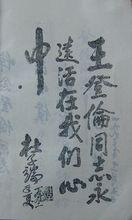 王登倫同志永
遠活在我们心
中
杜